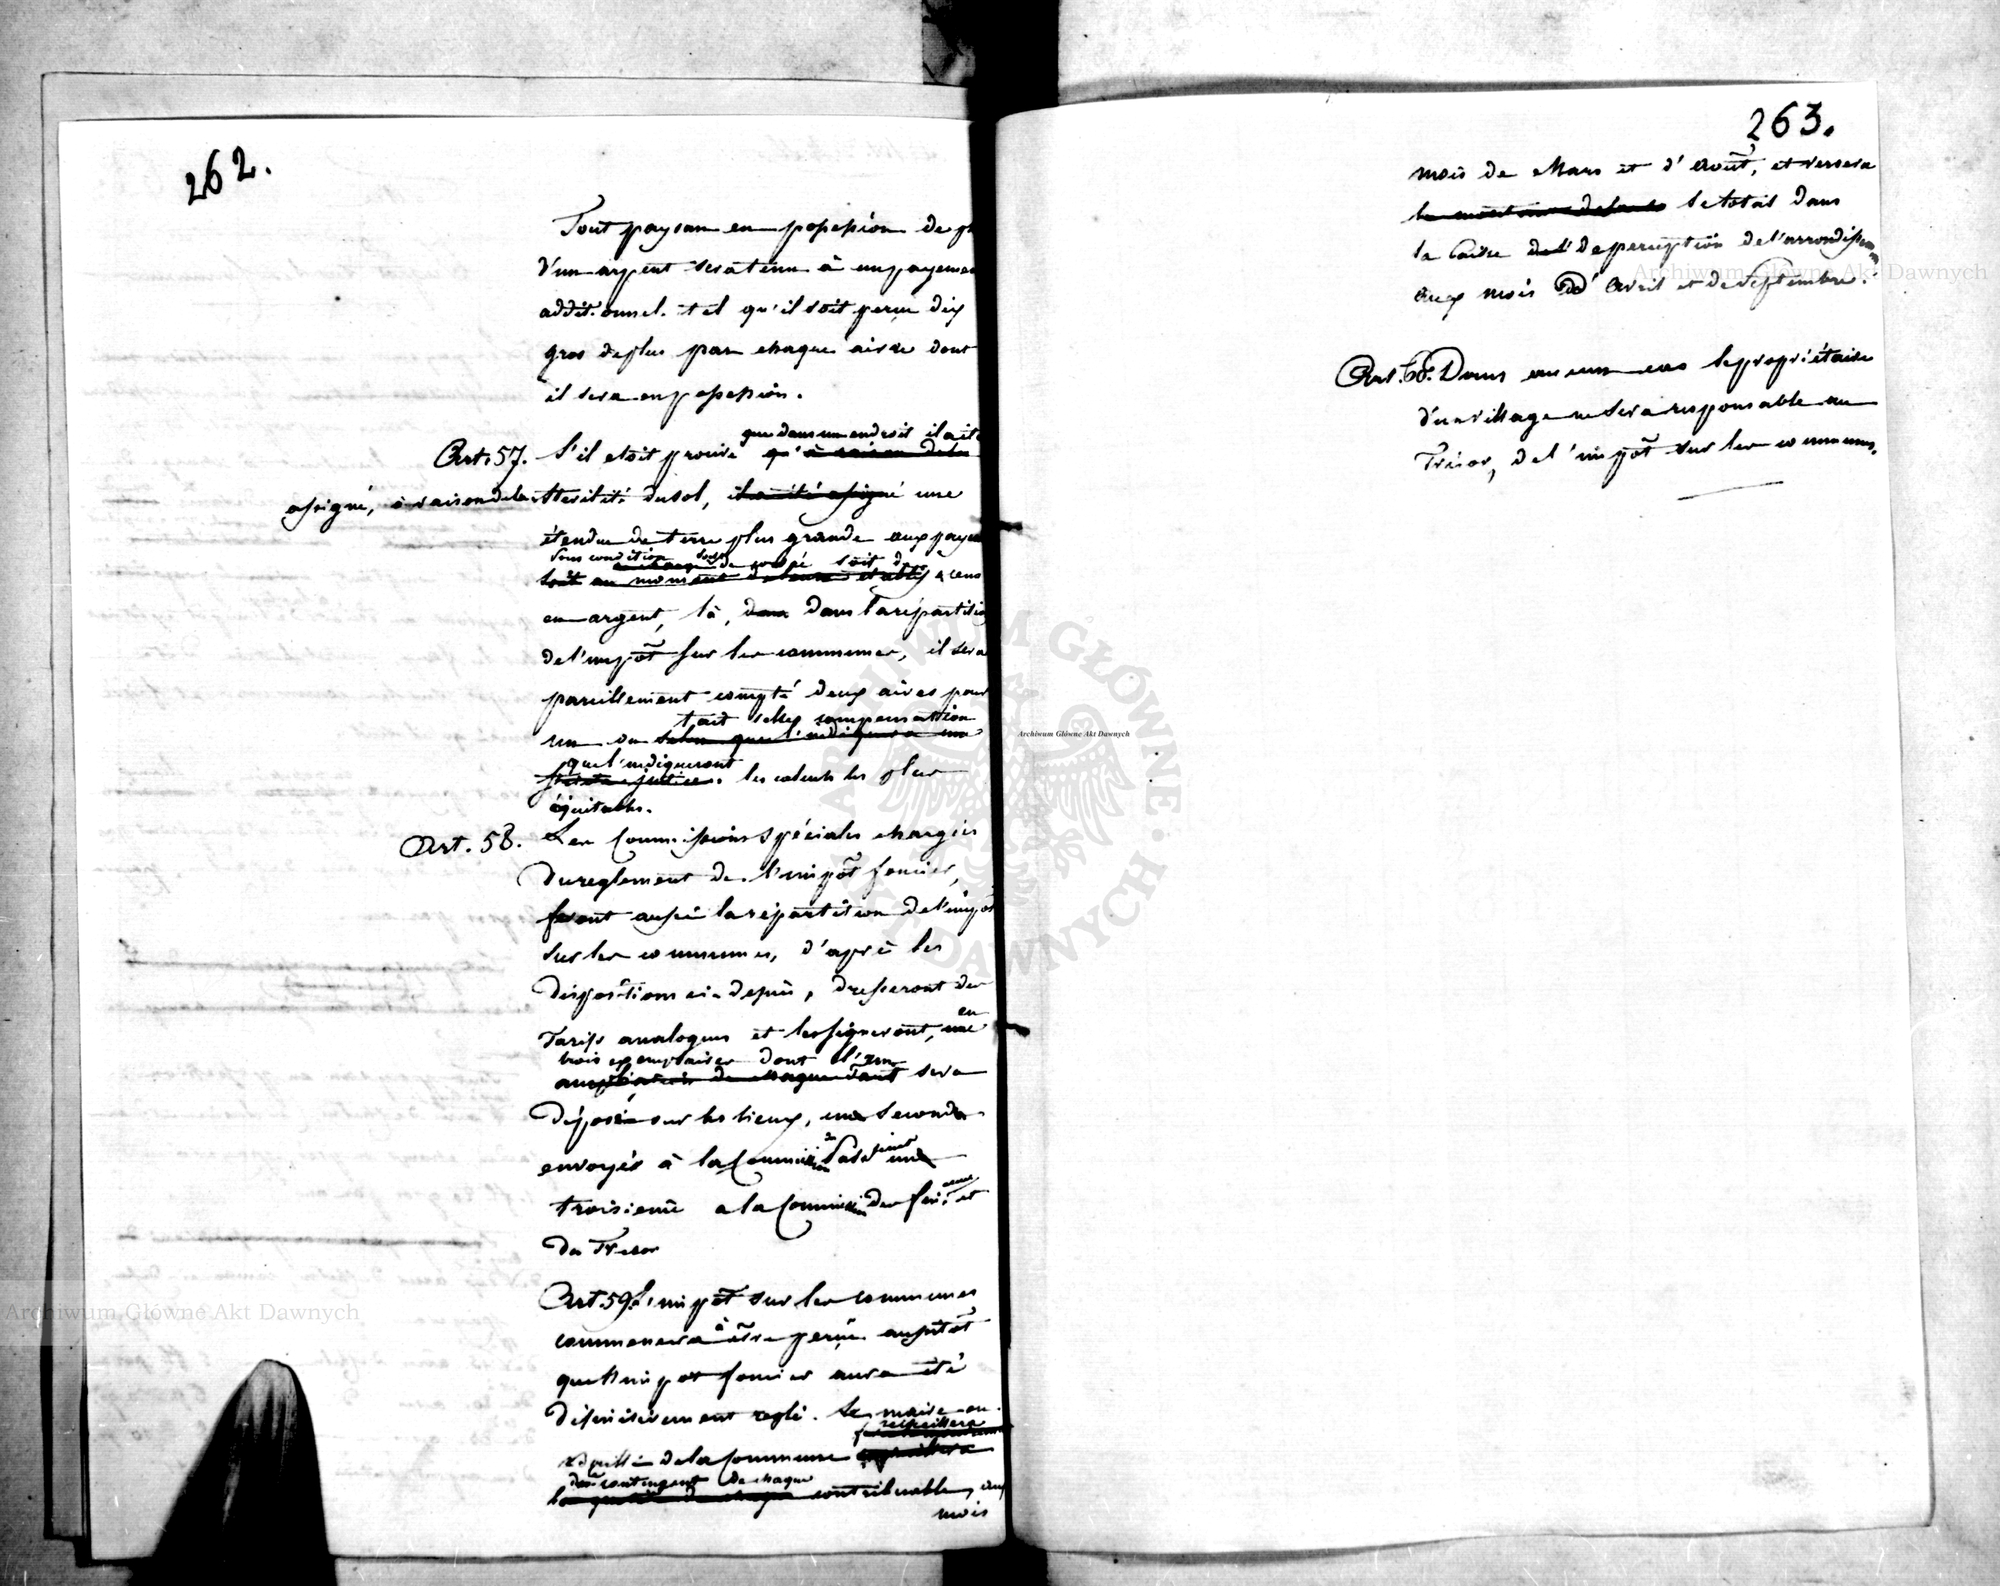 262.
Tout paysan en possession de pl
d'un arpent sera tenu à un payemen
additionnel. tel qu'il soit perçu dix
gros de plus par chaque aire dont
il sera en possession.
que dans un endroit il ait
Art. 57. S'il etoit prouvé qu' à raison de la
assigné, à raison de la sterilité du sol, il a été assigné une
étendue de terre plus grande aux paysa
sous condition de corvée soit de
soit au moment de leurs établis cens
en argent, là, dans la répartitio
de l'impôt sur les communes, il sera
pareillement compté deux aires pour
tout telle compensation
un ou selon que l'indiquera une
que l'indiqueront
stricte justice. les calculs les plus
équitables.
Art. 58. Les Commissions Spéciales chargées
du reglement de l'impôt foncier,
feront aussi la répartition de l'impôt
sur les communes, d'après les
dispositions ci-dessus, dresseront des
en
Tarifs analogues et les signeront, une
trois exemplaires dont l'un
ampliation de chaque dont sera
déposé sur les lieux, un second
envoyés à la Commission du une
troisieme a la Commission des fin. et
du Tresor
Art. 59. L'impôt sur les communes
commencera à être perçu aussitôt
que l'impot foncier aura été
définitivement reglé. Le maire ou
recueillera
de la Commune
contingent de chaque
contribuable, aux
mois
263.
mois de Mars et d'Août, et versera
le montant de le total dans
la Caisse de perception de l'arrondissem
aux mois d'Avril et de Septembre.
Art. 60. Dans aucun cas le propriétaire
d'un village ne sera responsable au
Trésor, de l'impôt sur les communes.
Archiwum Główne Akt Dawnych
Archiwum Główne Akt Dawnych
Archiwum Główne Akt Dawnych
ARCHIWUM GŁÓWNE AKT DAWNYCH